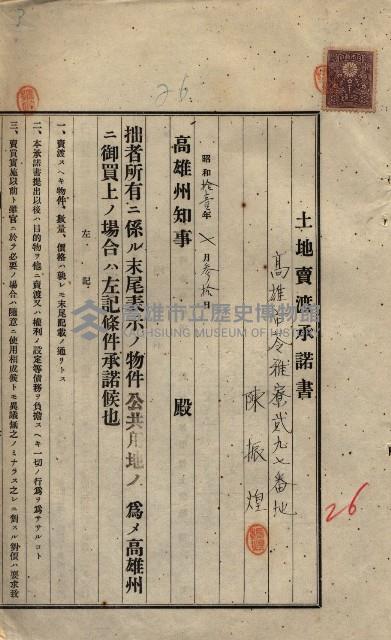 土地賣渡承諾書
高雄市苓雅寮貳九七番地
陳振煌
昭和拾壹年七月參拾日
高雄州知事 殿
拙者所有ニ係ル末尾表示ノ物件公共用地ノ為メ高雄州
ニ御買上ノ場合ハ左記條件承諾候也
左記
一、賣渡スヘキ物件、數量、價格ハ總レモ末尾記載ノ通リトス
二、本承諾書提出以後ハ目的物ヲ他ニ賣渡又ハ權利ノ設定等債務ヲ負擔スヘキ一切ノ行為ヲ為ササルコト
三、賣買實施以前ト雖官ニ於テ必要ノ場合ハ隨意ニ使用相成候トモ異議無之ノミナラス之レニ對スル對價ハ要求致
26
26
3
高雄市立歷史博物館
KAOHSIUNG MUSEUM OF HISTORY